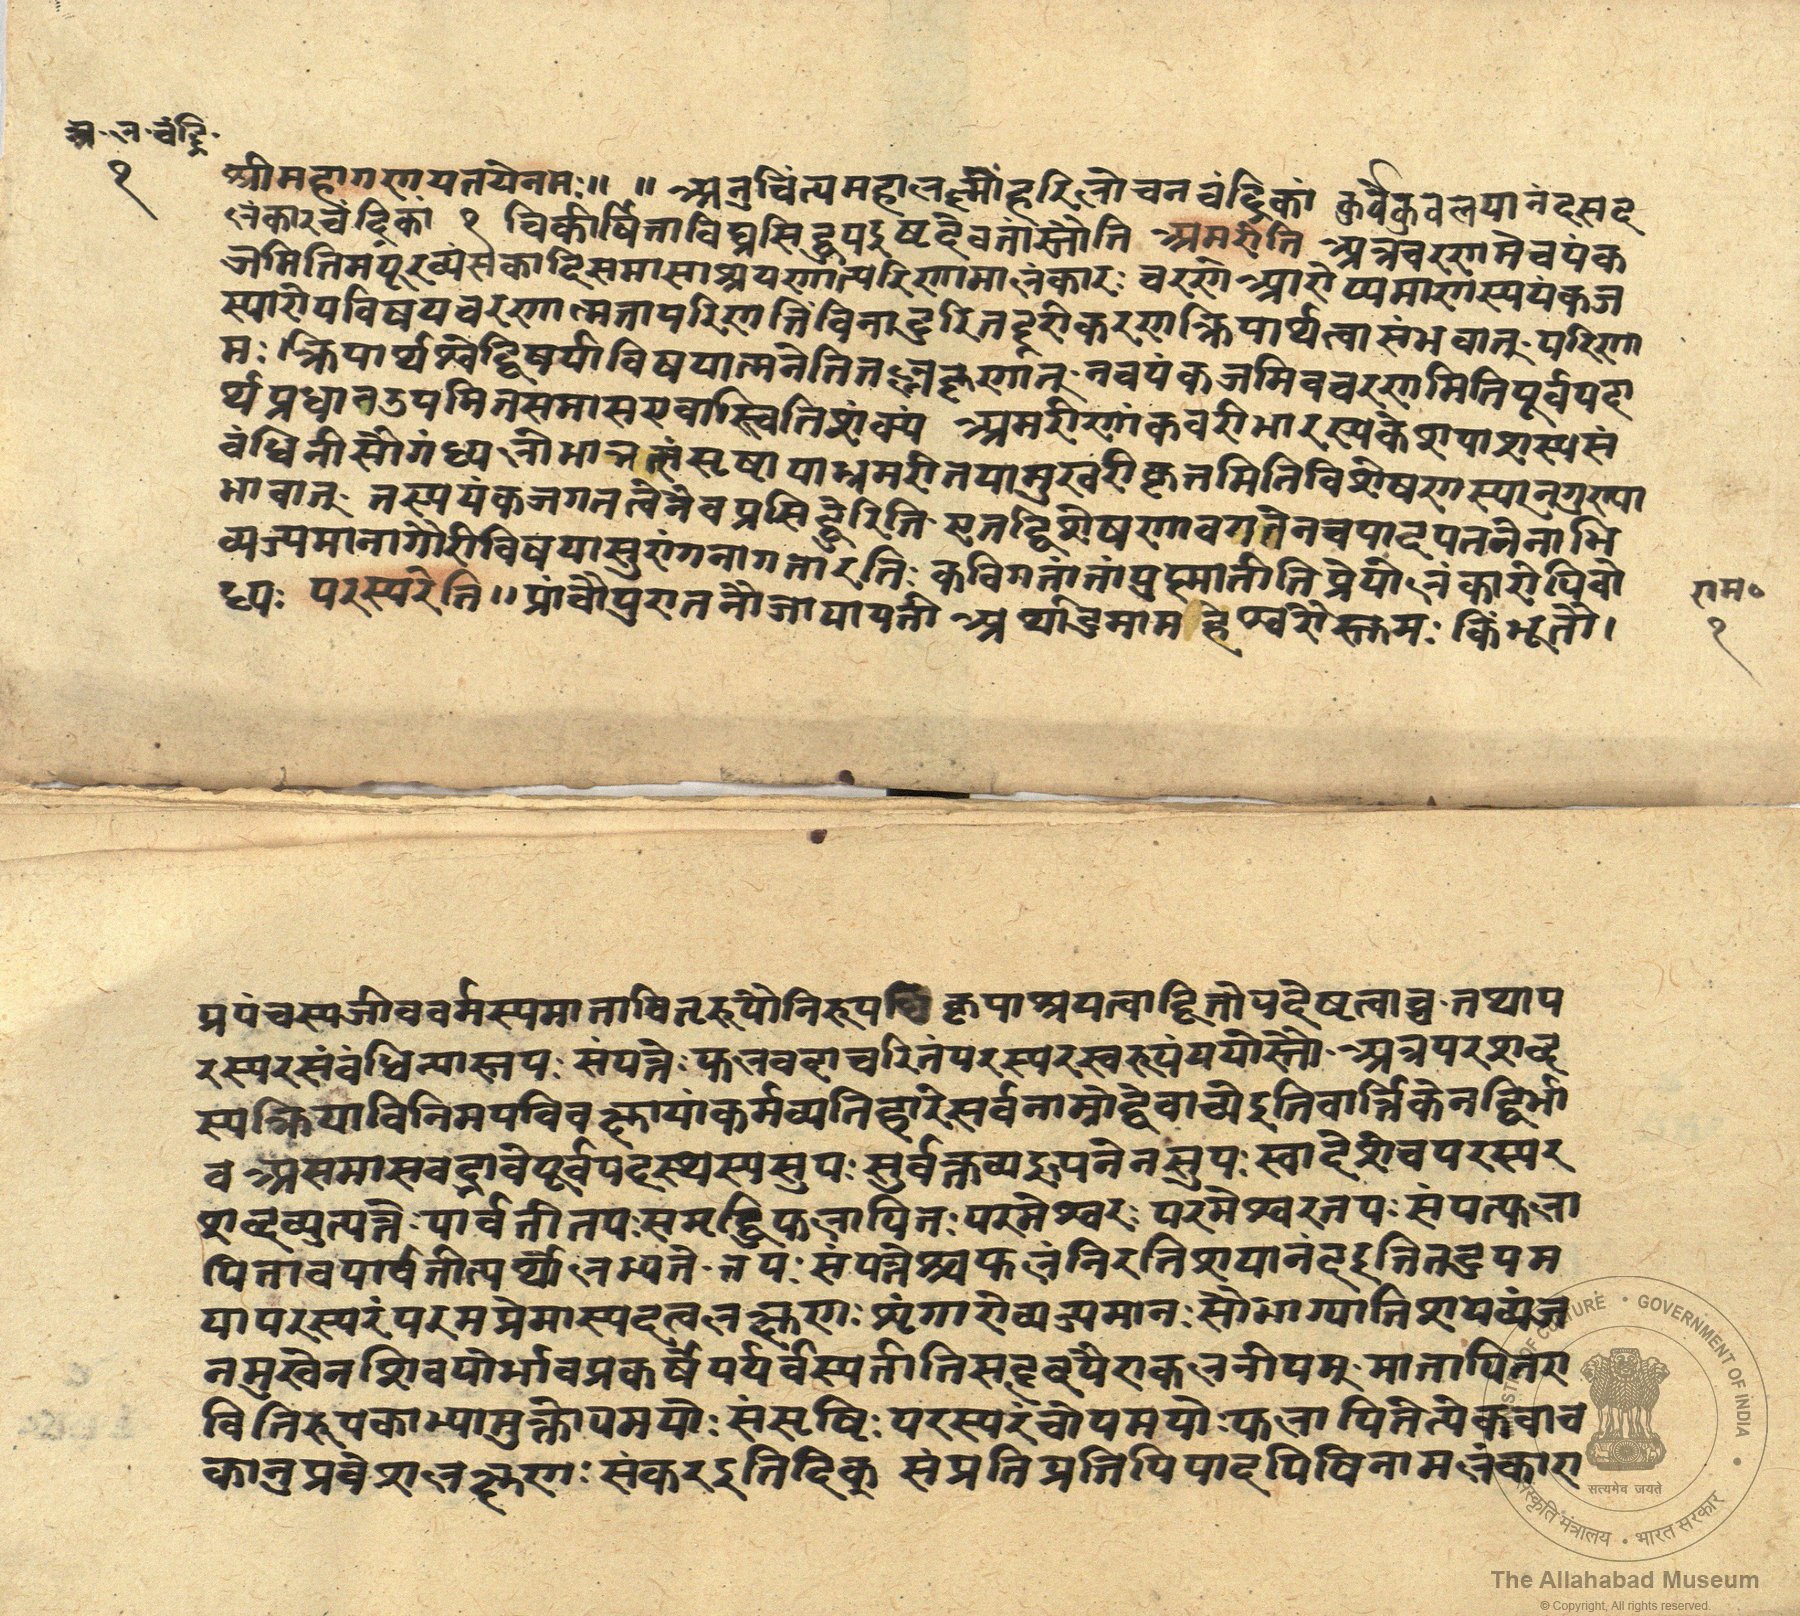 अ. ल. चंद्रि.
१
श्रीमहागणपतयेनमः॥ ॥ अनुचिंत्यमहालक्ष्मींहरिलोचनचंद्रिकां कुर्वेकुवलयानंदसद
लंकारचंद्रिकां १ चिकीर्षिताविघ्नसिद्धयइष्टदेवतांस्तौति अमरीति अत्रचरणमेवपंक
जमितिमयूरव्यंसकादिसमासाश्रयणात्परिणामालंकारः चरणेआरोप्यमाणस्यपंकज
स्यारोपविषयचरणात्मतापरिणतिंविनादुरितदूरीकरणक्रियार्थत्वासंभवात् परिणा
मः क्रियार्थश्चेद्विषयीविषयात्मनेतितल्लक्षणात् नचपंकजमिवचरणमितिपूर्वपदा
र्थप्रधानउपमितसमासएवास्त्वितिशंक्यं अमरीणांकवरीभारस्यकेशपाशस्यसं
बंधिनीसौगंध्यलोभात्तत्संसृष्टायाभ्रमरीतयामुखरीकृतमितिविशेषणस्यानुगुण्या
भावात् तस्यपंकजगतत्वेनैवप्रसिद्धेरिति एतद्विशेषणावगतेनचपादपतनेनाभि
व्यज्यमानागौरीविषयासुरांगनागतारतिः कविगतांतांपुष्णातीतिप्रेयोलंकारोपिबो
ध्यः परस्परेति॥प्रांचौपुरातनौजायापती अर्थादुमामहेश्वरौस्तुमः किंभूतौ।
राम०
१
प्रपंचस्यजीववर्गस्यमातापितृरूपौनिरुपधि कृपाश्रयत्वाद्धितोपदेष्टृत्वाच्च तथाप
रस्परसंबंधिन्यास्तपः संपत्तेः फलवदाचरितंपरस्परस्वरूपंययोस्तौ अत्रपरशब्द
स्यक्रियाविनिमयविवक्षायांकर्मव्यतिहारेसर्वनाम्नोद्वेवाच्येइतिवार्त्तिकेनद्विर्भा
व असमासवद्भावेपूर्वपदस्थस्यसुपः सुर्वक्तव्यइत्यनेनसुपः स्वादेशेचपरस्पर
शब्दव्युत्पत्तेः पार्वतीतपःसमृद्धिफलायितः परमेश्वरः परमेश्वरतपः संपत्फला
यिताचपार्वतीत्यर्थोलभ्यते तपः संपत्तेश्चफलंनिरतिशयानंदइतितद्रूपम
यापरस्परंपरमप्रेमास्पदत्वलक्षणः शृंगारोव्यज्यमानः सौभाग्यातिशयव्यंज
नमुखेनशिवयोर्भावप्रकर्षेपर्यवस्यतीतिसहृदयैराकलनीयम् मातापितरा
वितिरूपकाभ्यामुक्तोपमयोः संसृष्टिः परस्परंचोपमयोः फलायितेत्येकवाच
कानुप्रवेशलक्षणः संकरइतिदिक् संप्रतिप्रतिपिपादयिषितामलंकारा
MINISTRY OF CULTURE • GOVERNMENT OF INDIA
सत्यमेव जयते
संस्कृति मंत्रालय • भारत सरकार
The Allahabad Museum
© Copyright, All rights reserved.